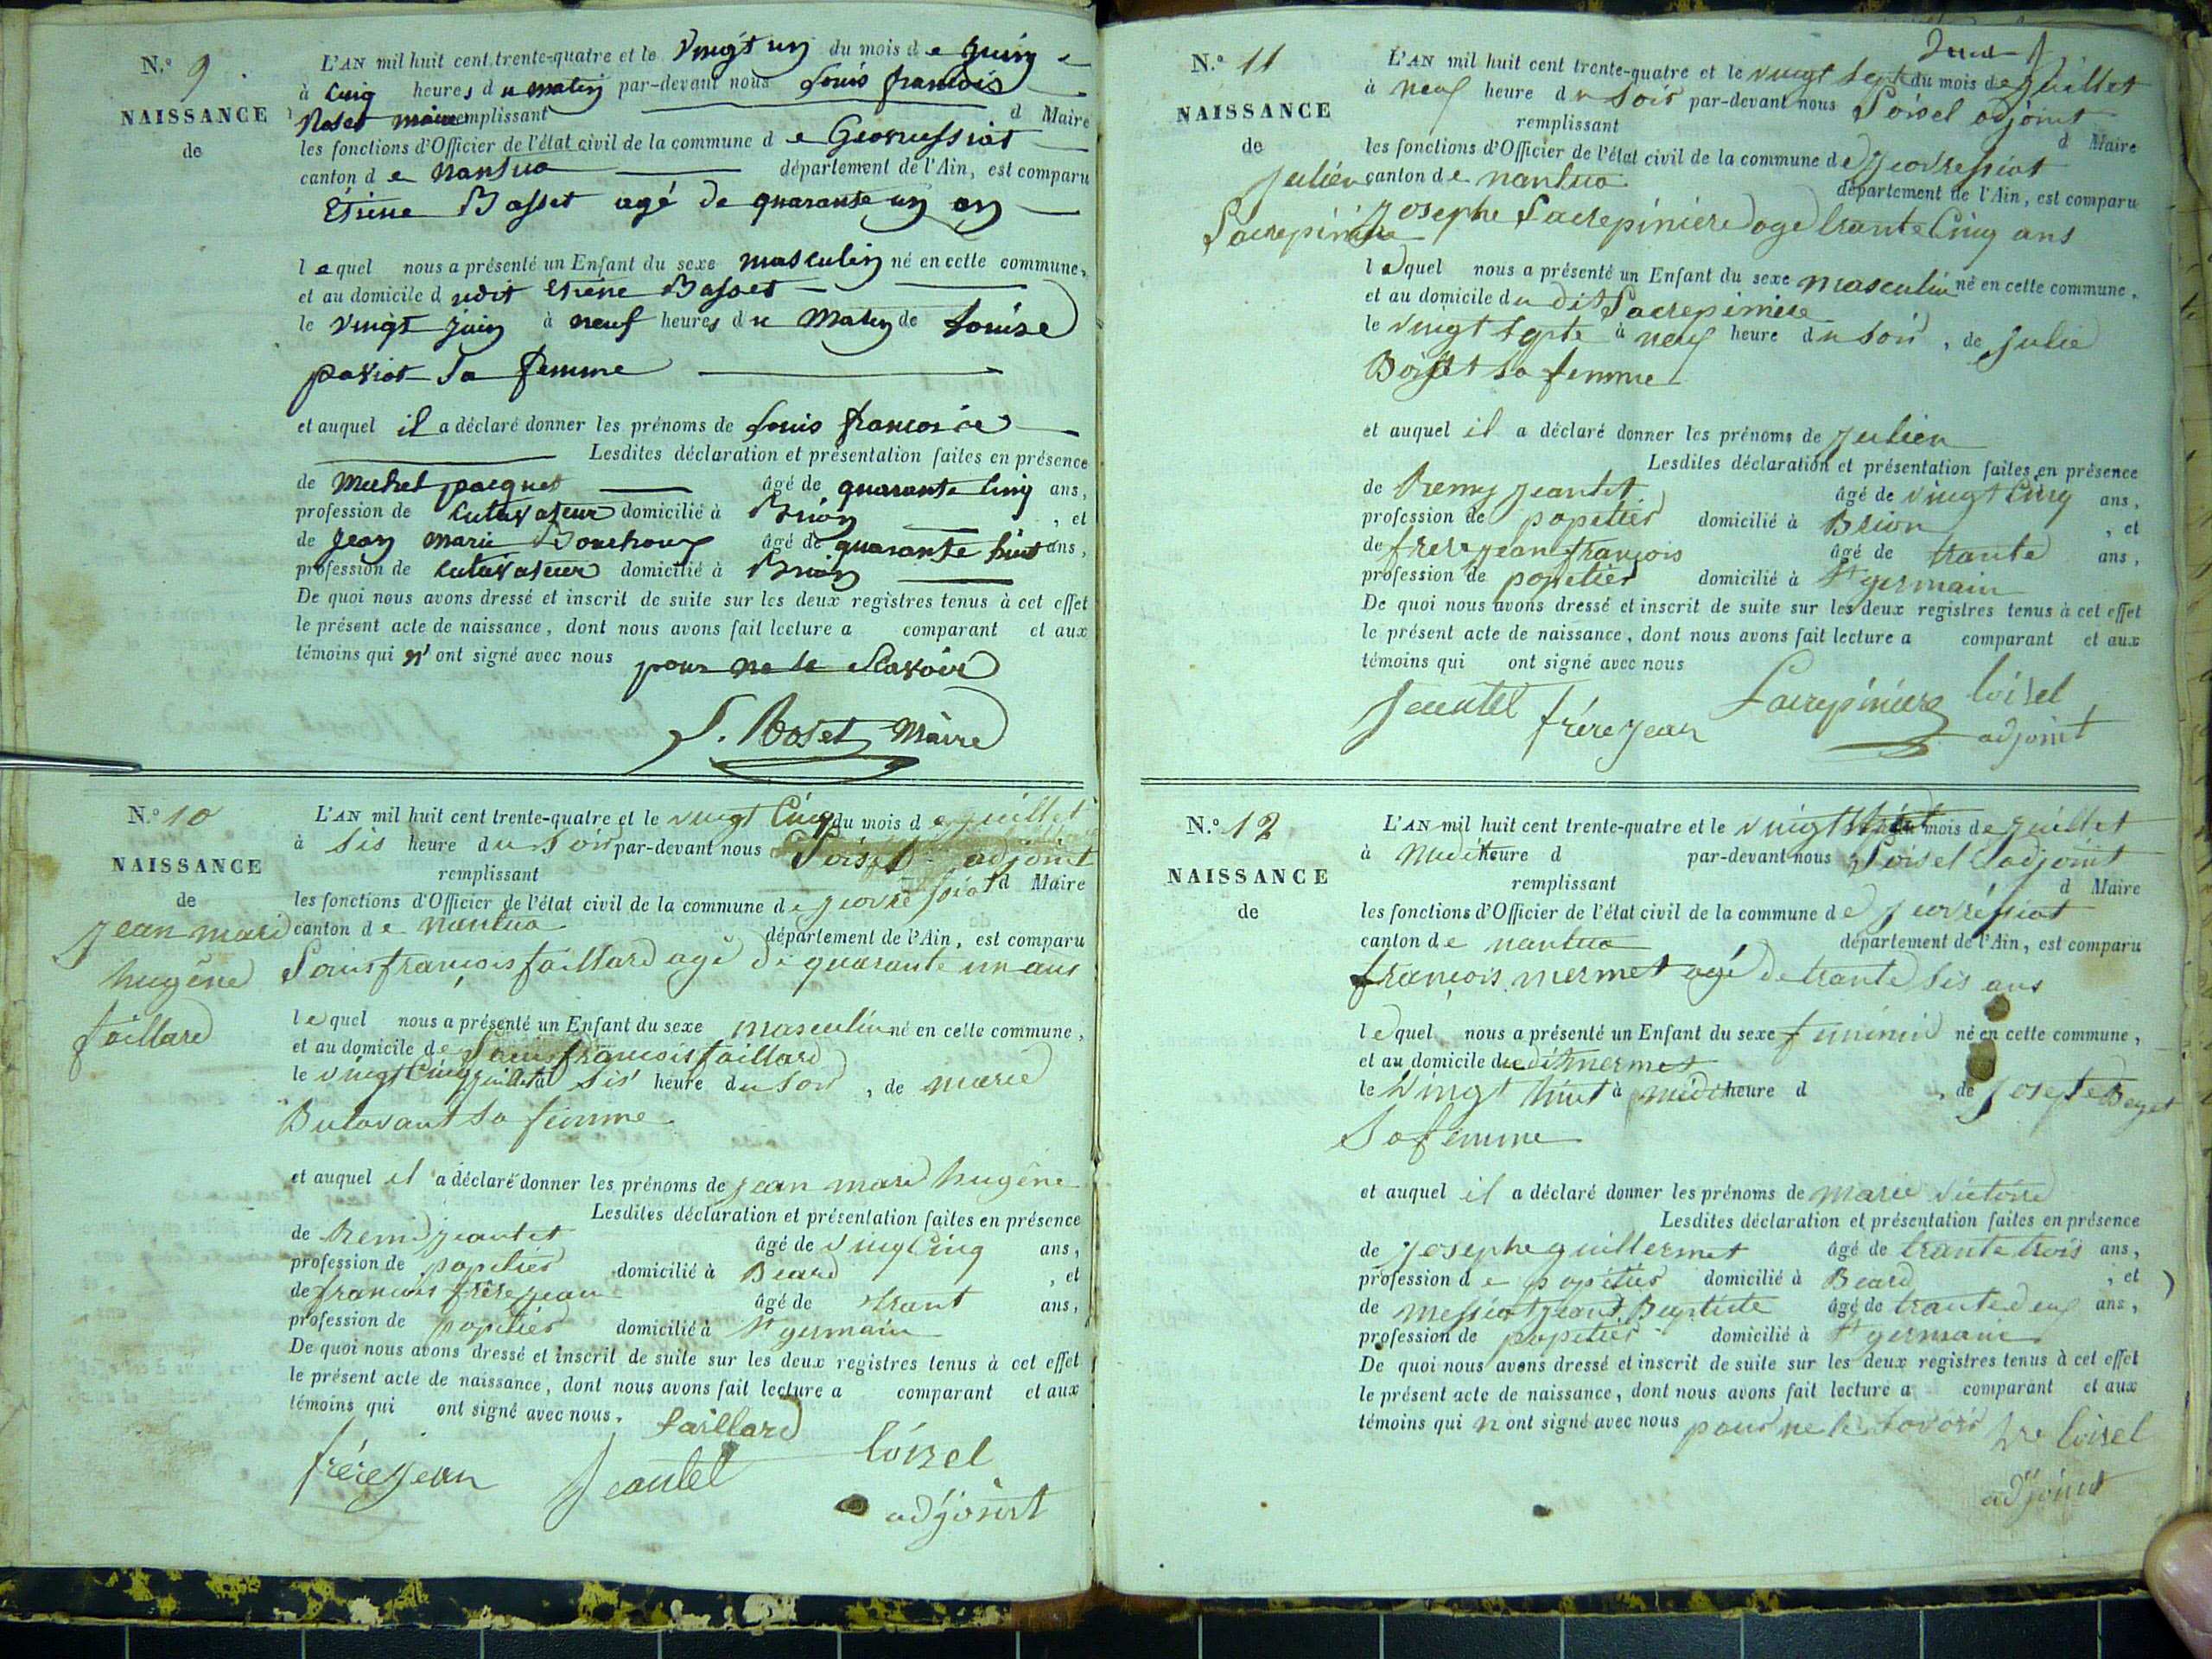 N.° 9.
NAISSANCE
de
L'AN mil huit cent trente-quatre et le vingt un du mois de juin
à cinq heures du matin par-devant nous Louis francois
Roset maire remplissant d Maire
les fonctions d'Officier de l'état civil de la commune de Geovressiat
canton de nantua département de l'Ain, est comparu
Etiene Basset agé de quarante un an
lequel nous a présenté un Enfant du sexe masculin né en cette commune,
et au domicile dudit Etiene Basset
le vingt juin à neuf heures du matin de Louise
paviot sa femme
et auquel il a déclaré donner les prénoms de Louis francois
Lesdites déclaration et présentation faites en présence
de Michel pacquet âgé de quarante cinq ans,
profession de cutivateur domicilié à Brion, et
de jean marie Bouchoux âgé de quarante huit ans,
profession de cutivateur domicilié à Brion
De quoi nous avons dressé et inscrit de suite sur les deux registres tenus à cet effet
le présent acte de naissance, dont nous avons fait lecture a comparant et aux
témoins qui n'ont signé avec nous pour ne le scavoir
L. Roset Maire
N.° 10
NAISSANCE
de
jean mari
hugène
faillard
L'AN mil huit cent trente-quatre et le vingt cinq du mois de juillet
à sis heure du soir par-devant nous Loisel adjoint
remplissant d Maire
les fonctions d'Officier de l'état civil de la commune de jeovressiat
canton de nantua département de l'Ain, est comparu
Louis françois faillard agé de quarante un ans
lequel nous a présenté un Enfant du sexe masculin né en cette commune,
et au domicile de Louis françois faillard
le vingt cinq juillet à sis heure du soir, de marie
Butavant sa femme
et auquel il a déclaré donner les prénoms de jean mari hugène
Lesdites déclaration et présentation faites en présence
de Remi jeantet âgé de vingcinq ans,
profession de papetier domicilié à Beard, et
de francois frêrejean âgé de trant ans,
profession de papetier domicilié à St germain
De quoi nous avons dressé et inscrit de suite sur les deux registres tenus à cet effet
le présent acte de naissance, dont nous avons fait lecture a comparant et aux
témoins qui ont signé avec nous.
faillard
frérejean Jeantet loisel
adjoint
N.° 11
NAISSANCE
de
julien
Lacrepiniere
L'AN mil huit cent trente-quatre et le vingt sept du mois de juillet
à neuf heure du soir par-devant nous Loisel adjoint
remplissant d Maire
les fonctions d'Officier de l'état civil de la commune de jeovressiat
canton de nantua département de l'Ain, est comparu
josephe Lacrepiniere age trante cinq ans
lequel nous a présenté un Enfant du sexe masculin né en cette commune,
et au domicile du dit Lacrepiniere
le vingt septe à neuf heure du soir, de julie
Boisset sa femme
et auquel il a déclaré donner les prénoms de julien
Lesdites déclaration et présentation faites en présence
de Remy jeantet âgé de vingt cinq ans,
profession de papetier domicilié à Brion, et
de frere jean françois âgé de trante ans,
profession de papetier domicilié à St germain
De quoi nous avons dressé et inscrit de suite sur les deux registres tenus à cet effet
le présent acte de naissance, dont nous avons fait lecture a comparant et aux
témoins qui ont signé avec nous
Jeantet frérejean Lacrepiniere loisel
adjoint
N.° 12
NAISSANCE
de
L'AN mil huit cent trente-quatre et le vingt huit du mois de juillet
à midi heure d par-devant nous Loisel adjoint
remplissant d Maire
les fonctions d'Officier de l'état civil de la commune de jeovréssiat
canton de nantua département de l'Ain, est comparu
françois mermet agé de trante sis ans
lequel nous a présenté un Enfant du sexe feminin né en cette commune,
et au domicile du dit mermet
le vingt huit à midi heure d , de josepte Beyet
sa femme
et auquel il a déclaré donner les prénoms de marie victoire
Lesdites déclaration et présentation faites en présence
de josephe guillermet âgé de trante trois ans,
profession de papetier domicilié à Beard, et
de messiat jeant Baptiste âgé de trante deux ans,
profession de papetier domicilié à St germain
De quoi nous avons dressé et inscrit de suite sur les deux registres tenus à cet effet
le présent acte de naissance, dont nous avons fait lecture a comparant et aux
témoins qui n ont signé avec nous pour ne le savoir loisel
adjoint